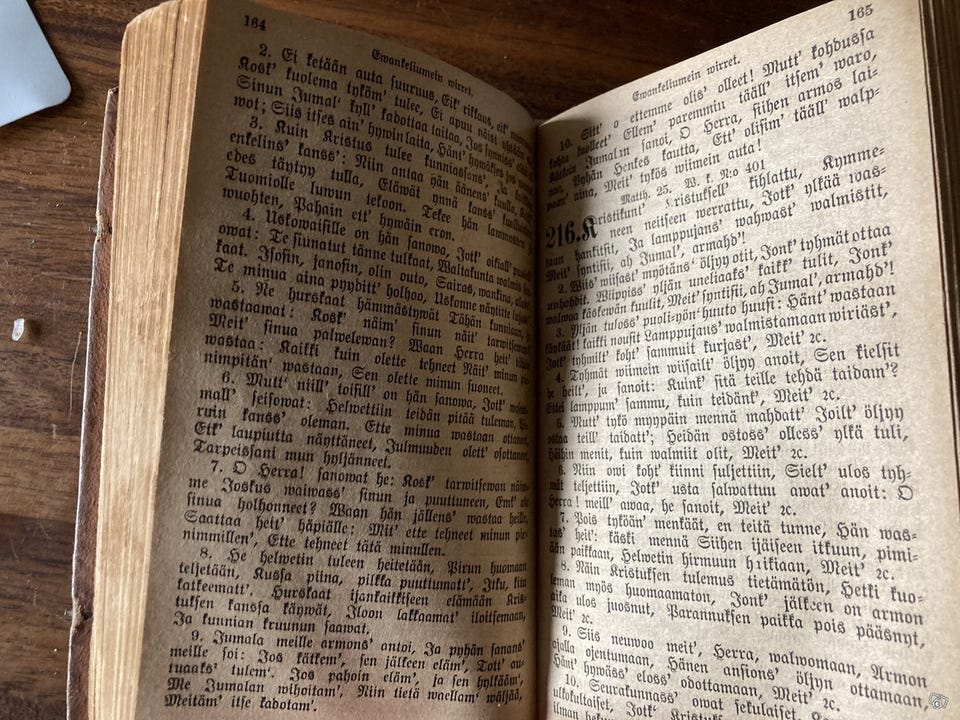 164
Ewankeliumein wirret.
2. Ei ketään auta suuruus, Eik' rikkaus, eik'
Kosk' kuolema tyköm' tulee, Ei apuu näist
Sinun Jumal' kyll' kadottaa taitaa, Jos
wot; Siis itses ain' hywin laita, Hänt' hywäksес jos
3. Kuin Kristus tulee kunniasans', Ja
enkelins' kanss': Niin antaa hän äänens' kuulla,
edes täytyy tulla, Eläwät ynnä kanss' kuolluitten
Tuomiolle luwun tekoon. Tekee hän lammasten
wuohten, Pahain ett' hywäin eron.
4. Uskowaisille on hän sanowa, Jotk' oikiall' puolell'
owat: Te siunatut tänne tulkaat, Waltakunta walmis
kaat. Isosin, janosin, olin outo, Sairas, wankina, alasti
Te minua aina pyyditt' holhoo, Uskonne näytitte
5. Ne hurskaat hämmästywät Tähän kunniaan,
wastaawat: Kosk' näim' sinun näit' tarwitsewan
Meit' sinua palwelewan? Waan Herra heit' tähän
wastaa: Kaikki kuin olette tehneet Näit' minun
nimpitän' wastaan, Sen olette minun suoneet.
6. Mutt' niill' toisill' on hän sanowa, Jotk' wasem-
mall' seisowat: Helwettiin teidän pitää tuleman,
ruin kanss' oleman. Ette minua wastaan ottaneet,
Etk' laupiutta näyttäneet, Julmuuden olett' osottaneet,
Tarpeissani mun hyljänneet.
7. O Herra! sanowat he: Kosk' tarwitsewan näim-
me Joskus waiwass' sinun ja puuttuneen, Emk' ole
sinua holhonneet? Waan hän jällens' wastaa heille,
Saattaa heit' häpiälle: Mit' ette tehneet minun pie-
nimmillen', Ette tehneet tätä minullen.
8. He helwetin tuleen heitetään, Pirun huomaan
teljetään, Kussa piina, pilkka puuttumatt', Itku, kiru
katkeematt'. Hurskaat ijankaikkiseen elämään Kris-
tuksen kanssa käywät, Iloon lakkaamat' iloitsemaan,
Ja kunnian kruunun saawat.
9. Jumala meille armons' antoi, Ja pyhän sanans'
meille soi: Jos kätkem', sen jälkeen eläm', Tott' au-
tuaaks' tulem'. Jos pahoin eläm', ja sen hylkääm',
Me Jumalan wihoitam', Niin tietä waellam' wäljää,
Meitäm' itse kadotam'.
165
Ewankeliumein wirret.
10. Jott' o ettemme olis' olleet! Mutt' kohdussa
kohta kuolleet! Ellem' paremmin tääll' itsem' waro,
Jumalan sanoi, O Herra, siihen armos lai-
naa, Pyhän Henkes kautta, Ett' olisim' tääll' walp-
paan' aina, Meit' tykös wiimein auta!
Matth. 25. W. k. N:o 401
216. Kristikunt' Kristuksell' kihlattu, Kymme-
neen neitseen werrattu, Jotk' ylkää was-
taan hankitsit, Ja lamppujans' wahwast' walmistit,
Meit' syntisii, ah Jumal', armahd'!
2. Wiis' wiisast' myötäns' öljyy otit, Jonk' tyhmät ottaa
unhohdit. Wiipyiss' yljän uneliaaks' kaikk' tulit, Jonk'
walwoa käskewän kuulit, Meit' syntisii, ah Jumal', armahd'!
3. Yljän tuloss' puoli-yön' huuto huusi: Hänt' wastaan
käykäät! kaikki nousit Lamppujans' walmistamaan wiriäst',
Jotk' tyhmilt' koht' sammuit kurjast', Meit' ꝛc.
4. Tyhmät wiimein wiisailt' öljyy anoit, Sen kielsit
he heilt', ja sanoit: Kuink' sitä teille tehdä taidam'?
Ettei lamppum' sammu, kuin teidänk', Meit' ꝛc.
5. Mutt' tykö myyppäin mennä mahdatt' Joilt' öljyy
ostaa teill' taidatt'; Heidän ostoss' olless' ylkä tuli,
Häihin menit, kuin walmiit olit, Meit' ꝛc.
6. Niin owi koht' kiinni suljettiin, Sielt' ulos tyh-
mät teljettiin, Jotk' usta salwattuu awat' anoit: O
Herra! meill' awaa, he sanoit, Meit' ꝛc.
7. Pois tyköön' menkäät, en teitä tunne, Hän was-
tas' heit': käski mennä Siihen ijäiseen itkuun, pimi-
ään paikkaan, Helwetin hirmuun h rikiaan, Meit' ꝛc.
8. Näin Kristuksen tulemus tietämätön, Hetki kuo-
leman myös huomaamaton, Jonk' jälkeen on armon
aika ulos juosnut, Parannuksen paikka pois pääsnyt,
Meit' ꝛc.
9. Siis neuwoo meit', Herra, walwomaan, Armon
ajalla ojentumaan, Hänen ansions' öljyn ottamaan,
Hänt' hywäss' eloss' odottamaan, Meit' ꝛc.
10. Seurakunnass' owat sekulaiset,
ulkokultaiset, Jotk' Kristuk
ilman